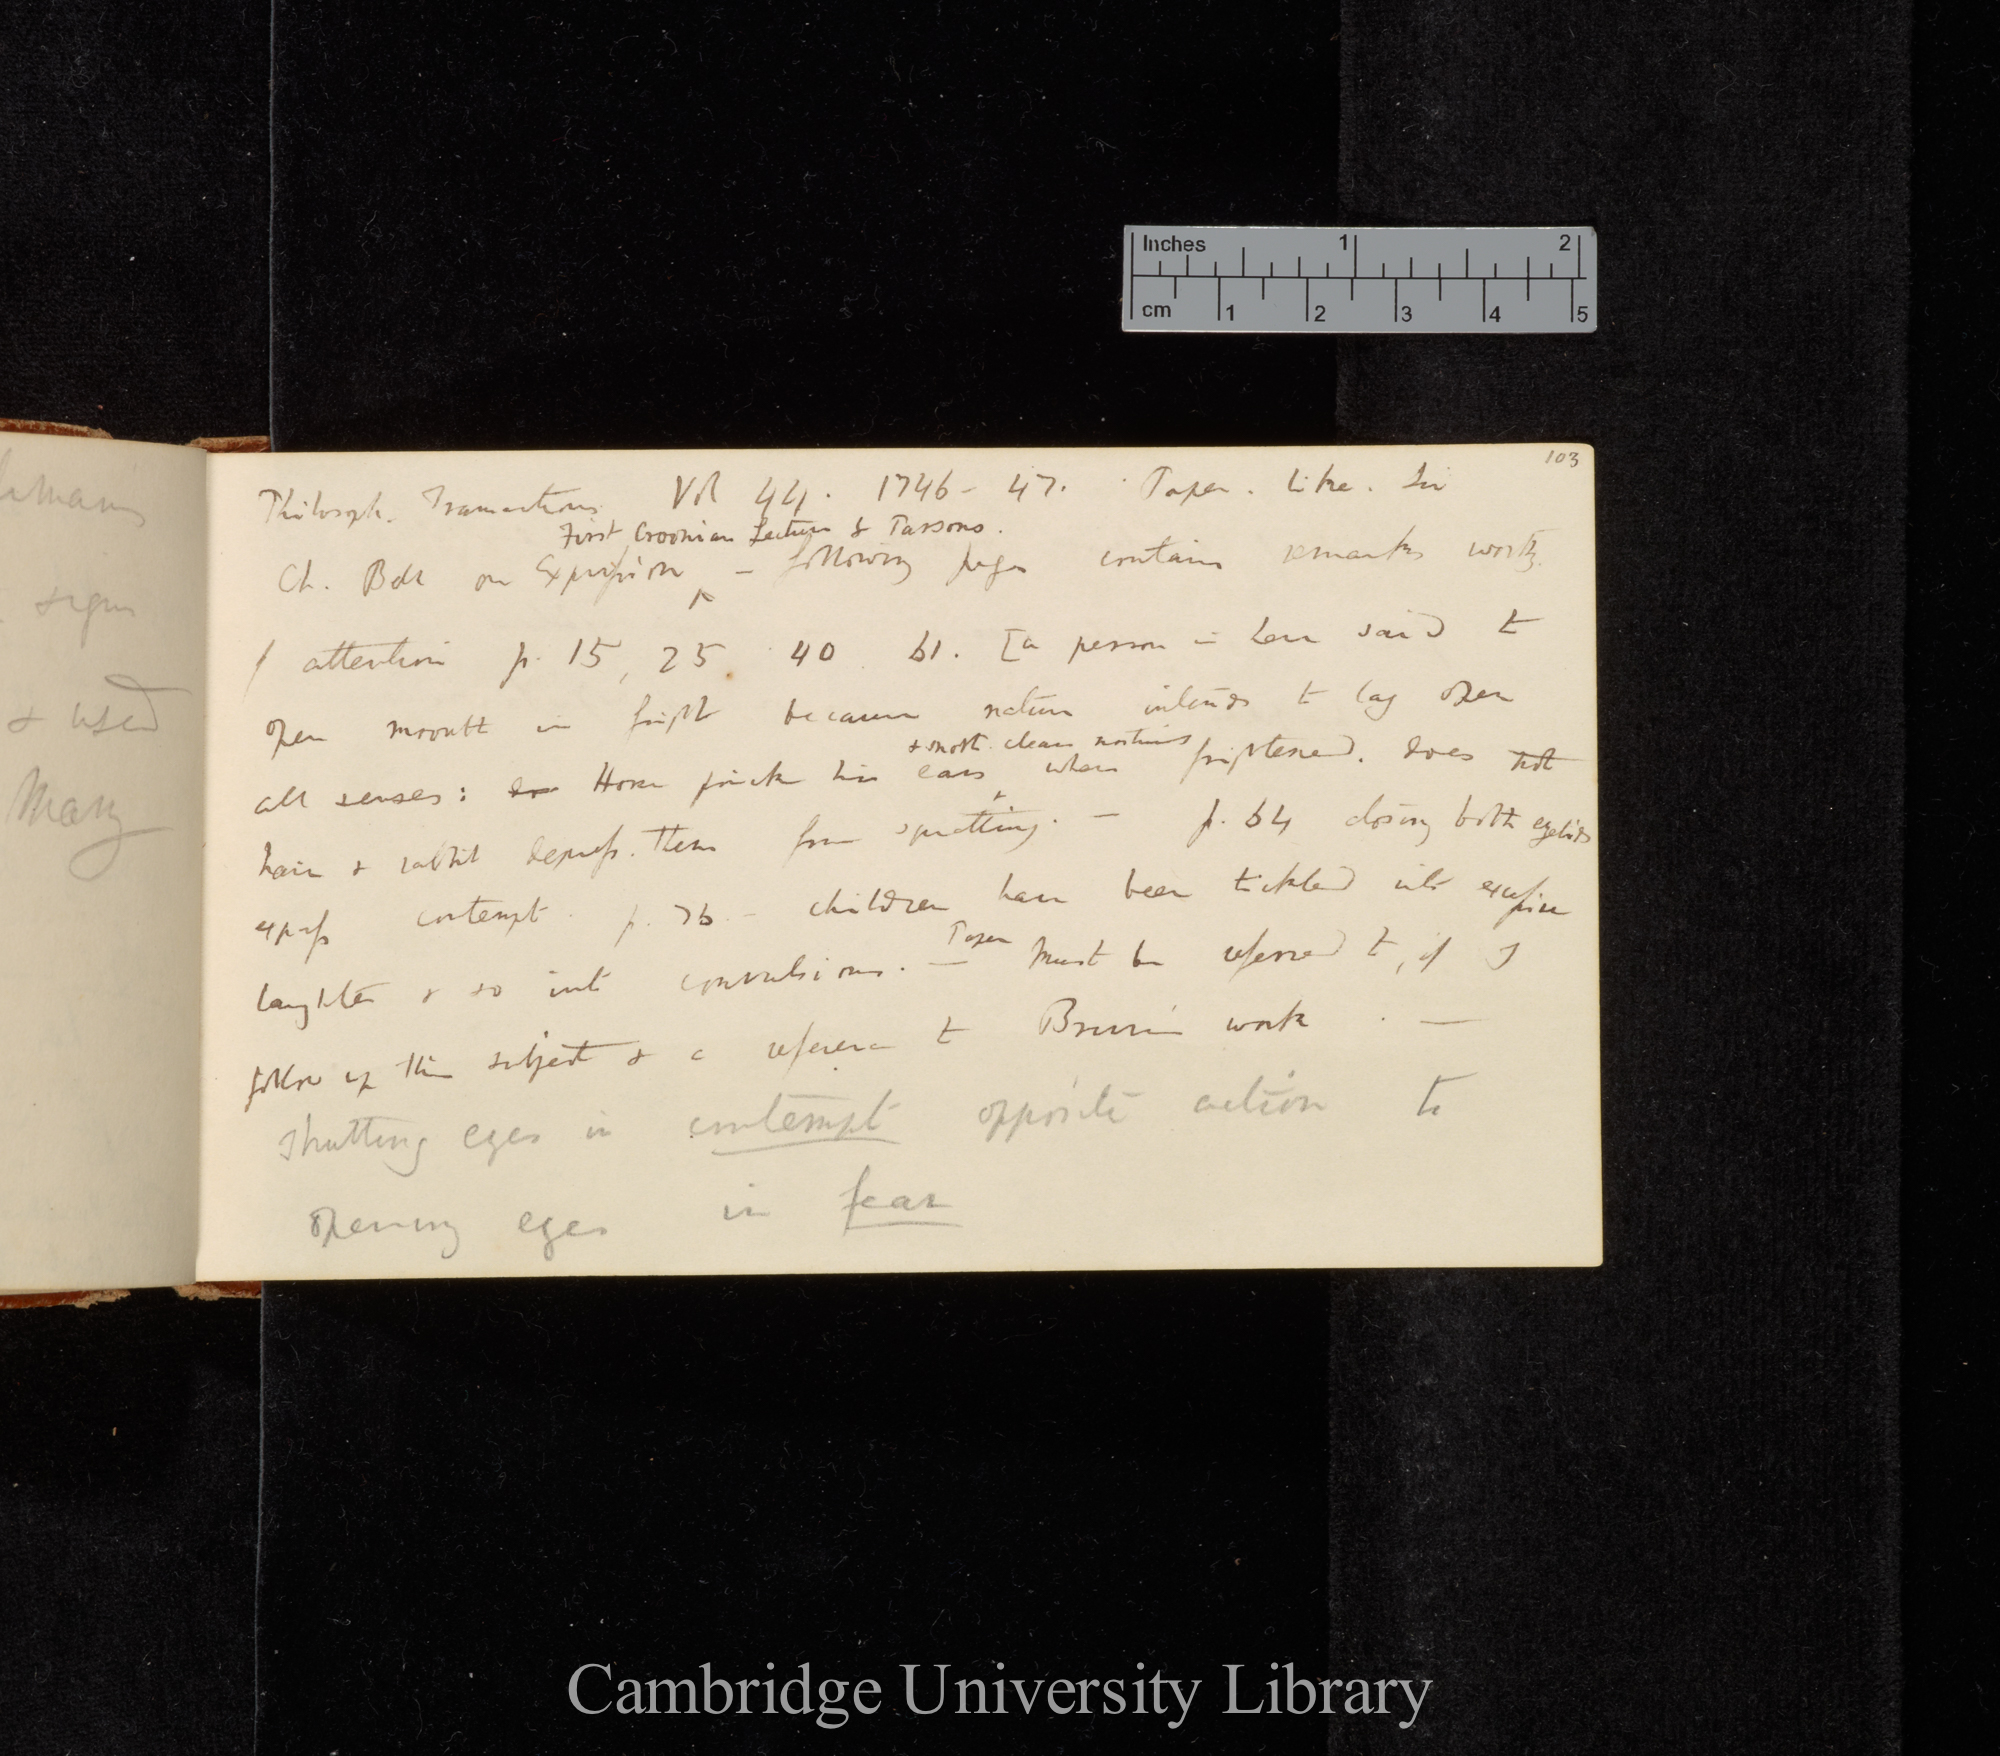 Inches 1 2
cm 1 2 3 4 5
103
Philosoph. Transactions Vol 44. 1746-47. Paper. like. Sir
First Croonian Lecture by Parsons.
Ch. Bell on Expression ^ — following pages contain remarks worthy
of attention p. 15, 25 40 61. [a person in fear said to
open mouth in fright because nature intends to lay open
all senses: Horse prick his ears when frightened. does not
& snort. clean nostrils
hare & rabbit depress. them from squatting. — p. 64 closing both eyelids
express contempt. p. 76 — children have been tickled into excessive
laughter & so into convulsions. — Paper Must be referred to, if I
follow up this subject & a reference to Le Brun's work. —
shutting eyes in contempt opposite action to
opening eyes in fear
& used
Many
Cambridge University Library